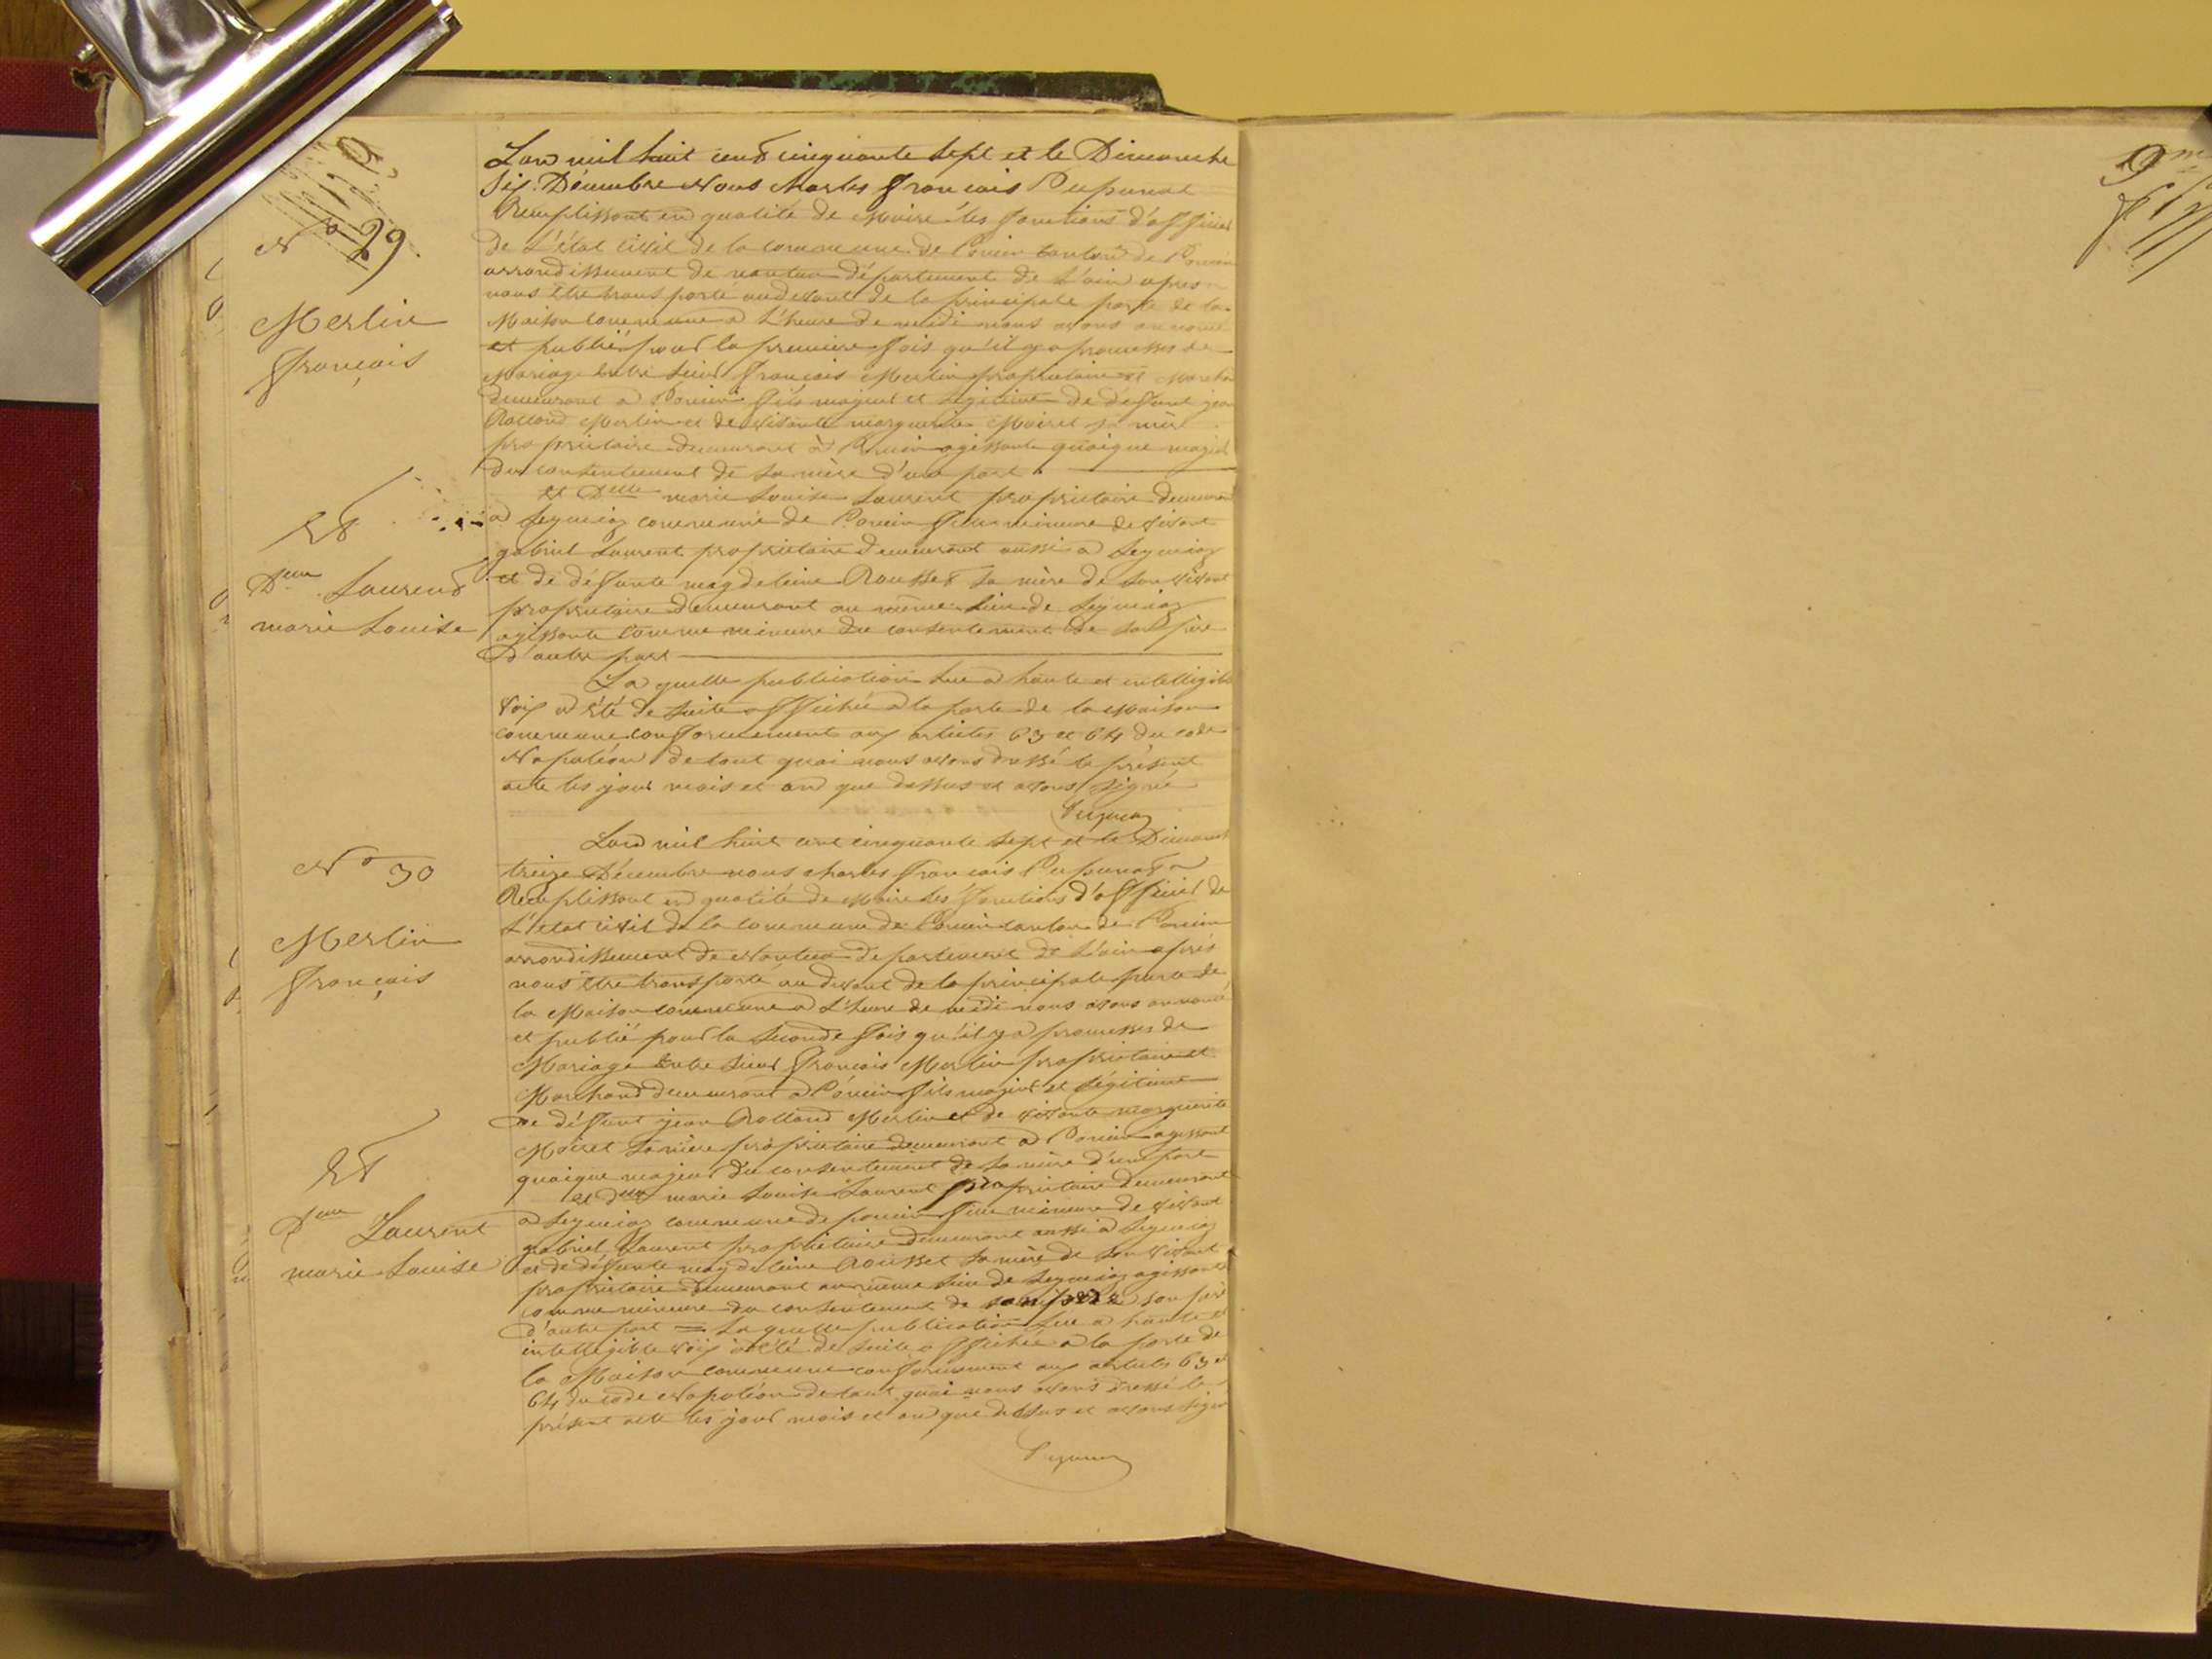 9
N° 29
Merlin
françois
Et
Delle Laurent
marie Louise
Lan mil huit cent cinquante sept et le Dimanche
Six Décembre Nous Charles François
Remplissant en qualité de Maire les fonctions d'officier
de L'état civil de la commune de Poncin canton de Poncin
arrondissement de nantua département de L'ain apres
nous être transporté au devant de la principale porte de la
Maison commune a L'heure de midi nous avons annoncé
et publié pour la premiere fois qu'il y a promesses de
Mariage Entre Sieur François Merlin propriétaire et March
demeurant a Poncin fils majeur et légitime de défunt jean
Rolland Merlin et de vivante marguerite Moiret sa mère
propriétaire demeurant à Poncin agissante quoique majeur
du consentement de sa mère d'une part
et Delle marie Louise Laurent propriétaire demeurant
a Leymiaz commune de Poncin fille mineure de vivant
gabriel Laurent propriétaire demeurant aussi a Leymiaz
et de défunte magdeleine Rousset sa mère de son vivant
propriétaire demeurant au même lieu de Leymiaz
agissante comme mineure du consentement de son père
D'autre part
La quelle publication lue a haute et intelligible
voix a été de suite affichée a la porte de la Maison
commune conformement aux articles 63 et 64 du code
Napoléon de tout quoi nous avons dressé le présent
acte les jour mois et an que dessus et avons signé
N° 30
Merlin
françois
Et
Delle Laurent
marie Louise
Lan mil huit cent cinquante sept et le Dimanch
treize Décembre nous charles françois
Remplissant en qualité de Maire les fonctions d'officier de
L'état civil de la commune de Poncin canton de Poncin
arrondissement de Nantua departement de L'ain après
nous être transporté au devant de la principale porte de
la Maison commune a L'heure de midi nous avons annoncé
et publié pour la seconde fois qu'il y a promesses de
Mariage Entre Sieur François Merlin propriétaire et
Marchand demeurant a Poncin fils majeur et légitime
de défunt jean Rolland Merlin et de vivante marguerite
Moiret sa mère propriétaire demeurant a Poncin agissant
quoique majeur du consentement de sa mère d'une part
et Delle marie Louise Laurent propriétaire demeurant
a Leymiaz commune de poncin fille mineure de vivant
gabriel Laurent propriétaire demeurant aussi a Leymiaz
et de défunte magdeleine Rousset sa mère de son vivant
propriétaire demeurant au même lieu de Leymiaz agissante
comme mineure du consentement de son père
d'autre part = La quelle publication lue a haute et
intelligible voix a été de suite affichée a la porte de
la Maison commune conformement aux articles 63 et
64 du code Napoléon de tout quoi nous avons dressé le
présent acte les jour mois et an que dessus et avons signé
9me